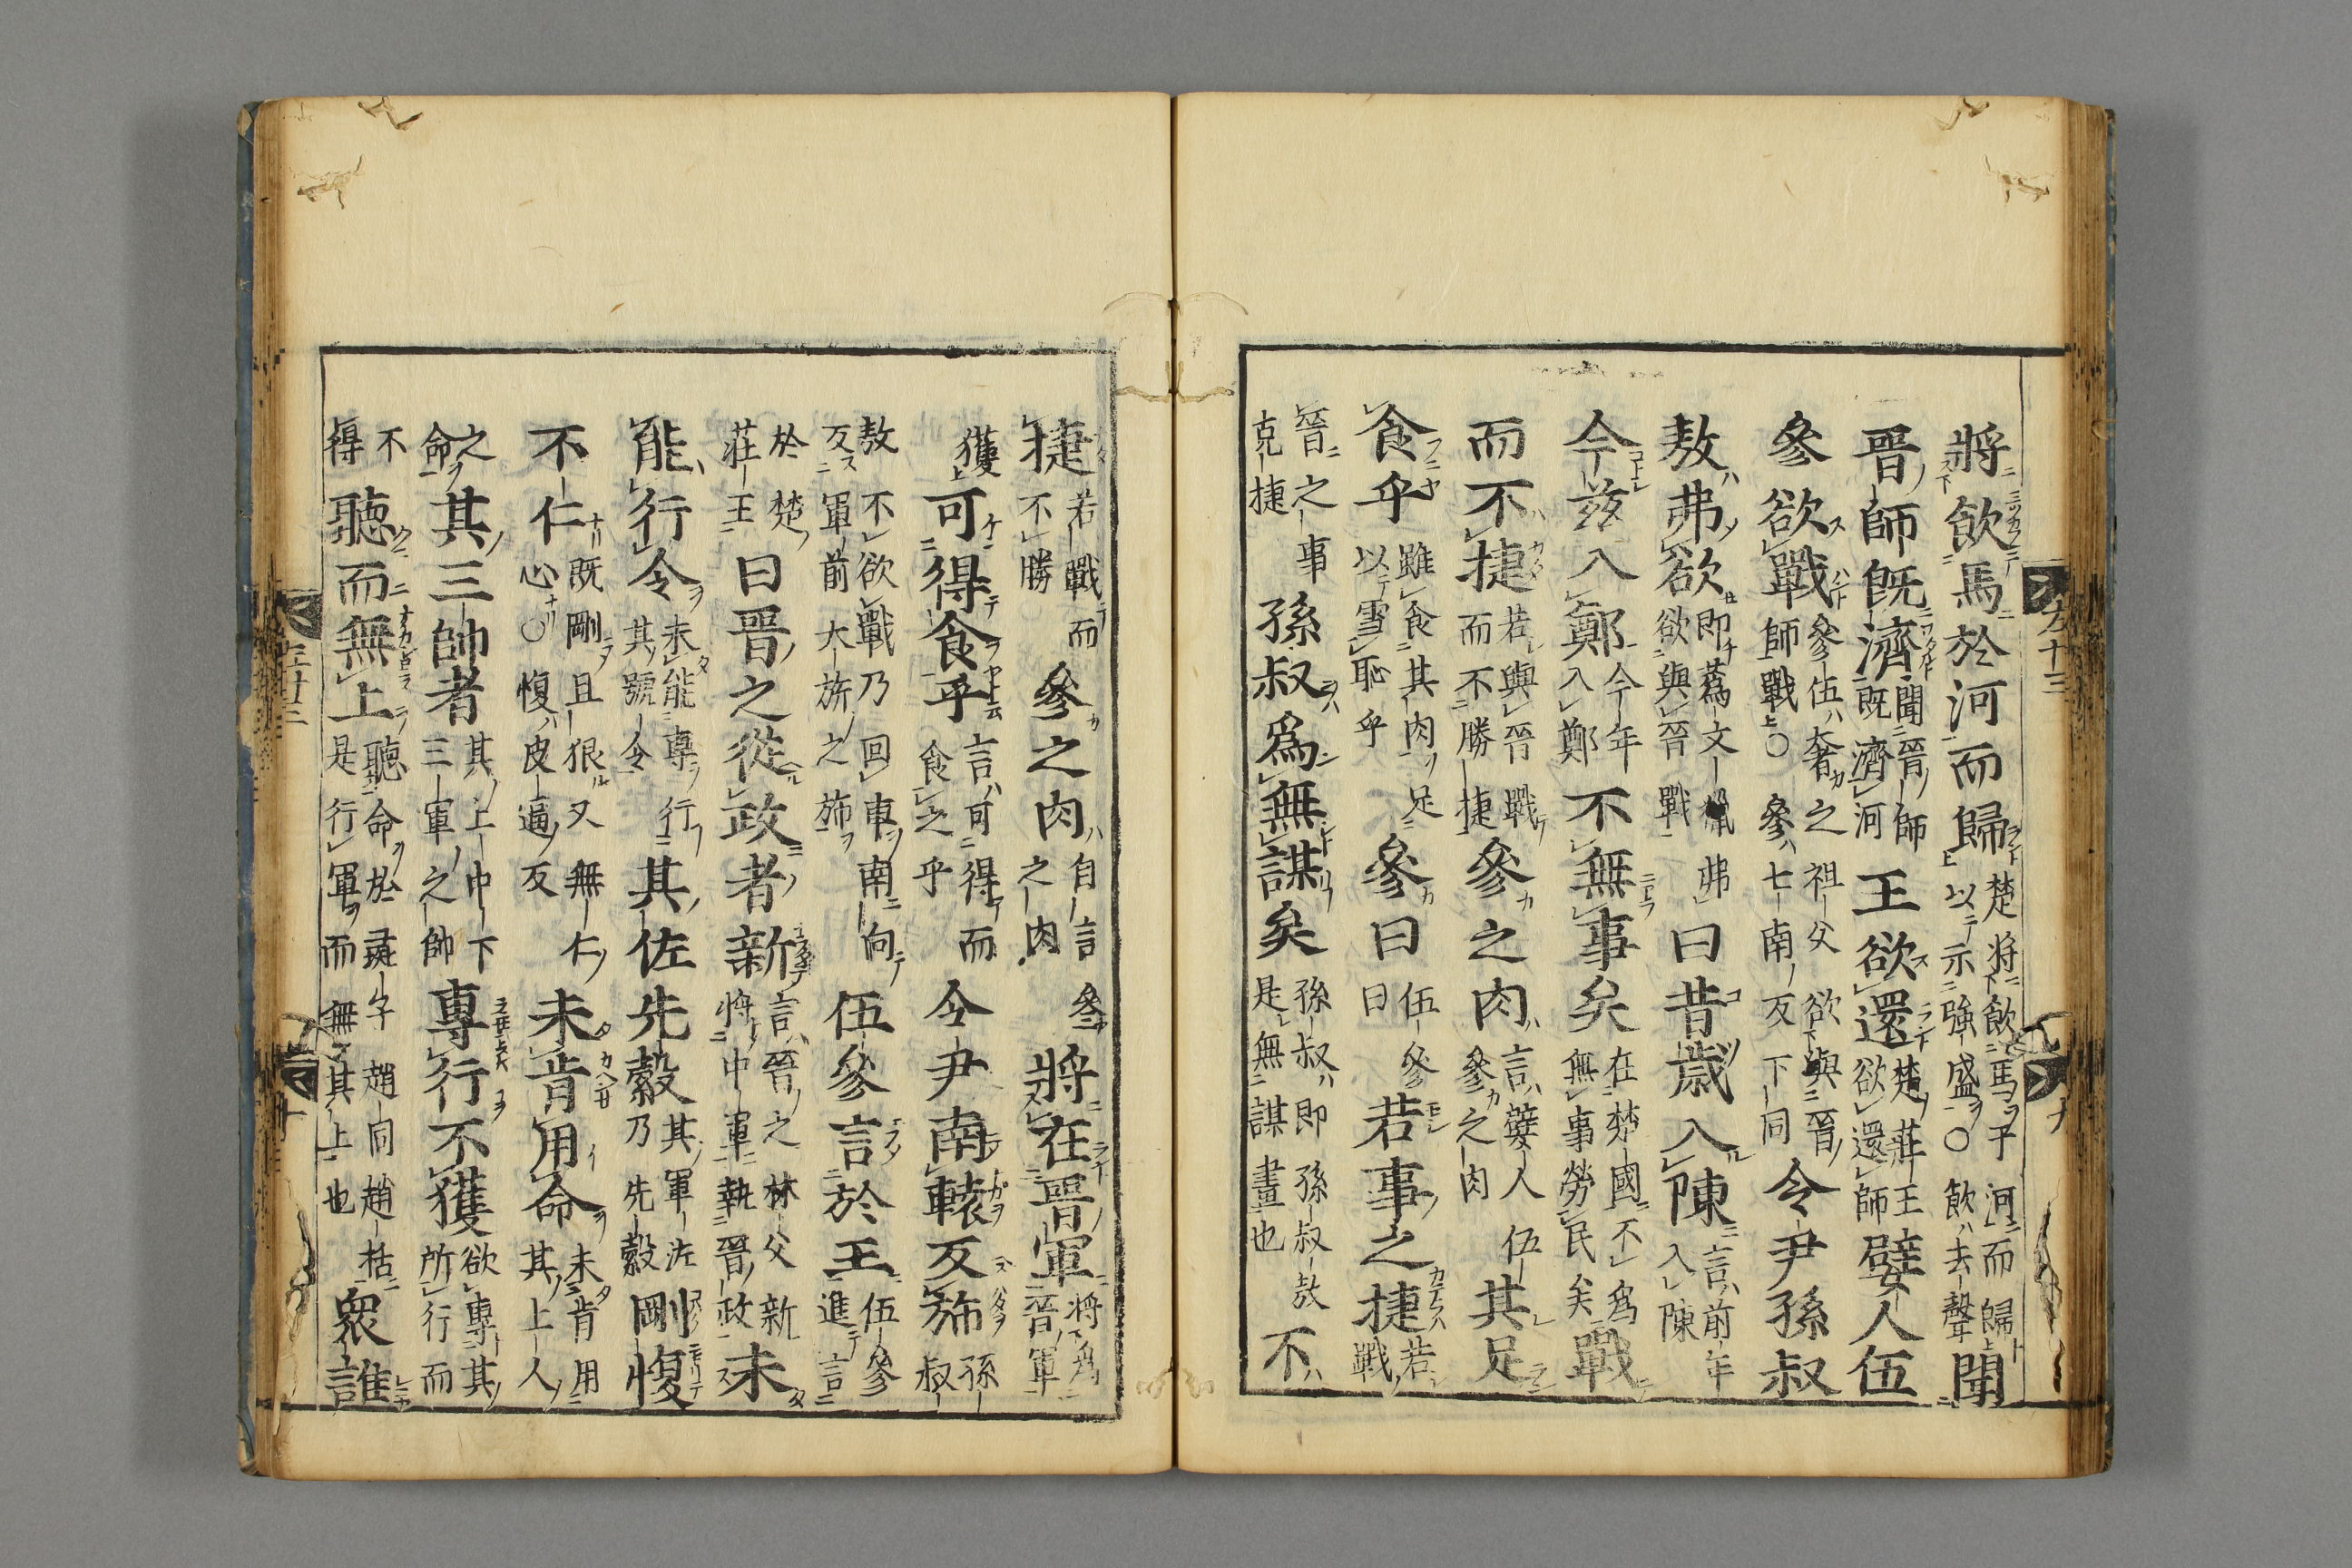 將飮馬於河而歸楚將飮馬于河而歸以示強盛○飮去聲聞
晉師既濟聞晉師既濟河王欲還楚莊王欲還師嬖人伍
參欲戰參伍奢之祖父欲與晉師戰○參七南反下同令尹孫叔
敖弗欲即蔿文弗欲與晉戰曰昔歲入陳言前年入陳
今茲入鄭今年入鄭不無事矣在楚國不爲無事勞民矣戰
而不捷若與晉戰而不勝捷參之肉言嬖人伍參之肉其足
食乎雖食其肉足以雪恥乎參曰伍參曰若事之捷若戰
晉之事克捷孫叔爲無謀矣孫叔即孫叔敖是無謀畫也不
捷若戰而不勝參之肉自言參之肉將在晉軍將爲晉軍
獲可得食乎言可得而食之乎令尹南轅反旆孫叔
敖不欲戰乃回車南向反軍前大旂之旆伍參言於王伍參進言
於楚莊王曰晉之從政者新言晉之林父新將中軍執晉政未
能行令未能專行其號令其佐先縠其軍佐乃先縠剛愎
不仁既剛且狠又無仁心○愎皮逼反未肯用命未肯用其上人
之命其三帥者其上中下三軍之帥專行不獲欲專其所行而
不得聽而無上聽命於彘子趙同趙括是行軍而無其上也衆誰
左十三
九